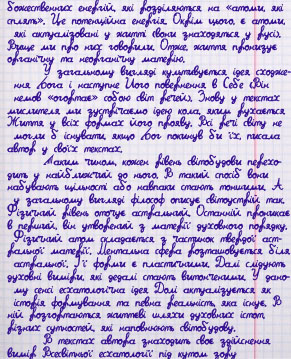 божественних енергій, які розділяються на «атоми, які
сплять». Це потенційна енергія. Окрім цього, є атоми,
які актуалізовані у житті (вони знаходяться у русі).
Вище ми про них говорили. Отже, життя пронизує
органічну та неорганічну матерію.
У загальному вигляді культивується ідея сходже-
ння Бога і наступне Його повернення в Себе. Він
немов «огортає» собою світ речей. Знову у текстах
мислителя ми зустрічаємо ідею кола, яким рухається
Життя у всіх формах його прояву. Всі речі світу не
могли б існувати, якщо Бог покинув би їх, писала
автор у своїх текстах.
Таким чином, кожен рівень світобудови перехо-
дить у найближчий до нього. В такий спосіб вони
набувають щільності або навпаки стають тоншими. А
у загальному вигляді філософ описує світоустрій так.
Фізичний рівень оточує астральний. Останній проникає
в перший, він утворений з матерії духовного порядку.
Фізичний атом складається з частинок твердої аст-
ральної матерії. Ментальна сфера розташовується біля
астральної, її форми є пластичними. Далі слідують
духовні виміри, які дедалі стають витонченими. У дано-
му сенсі есхатологічна ідея Долі актуалізується як
історія формування та певна реальність, яка існує. В
ній розгортаються життєві шляхи духовних істот,
різних сутностей, які наповнюють світобудову.
В текстах автора знаходить своє здійснення
вимір Всесвітньої есхатології під кутом зору